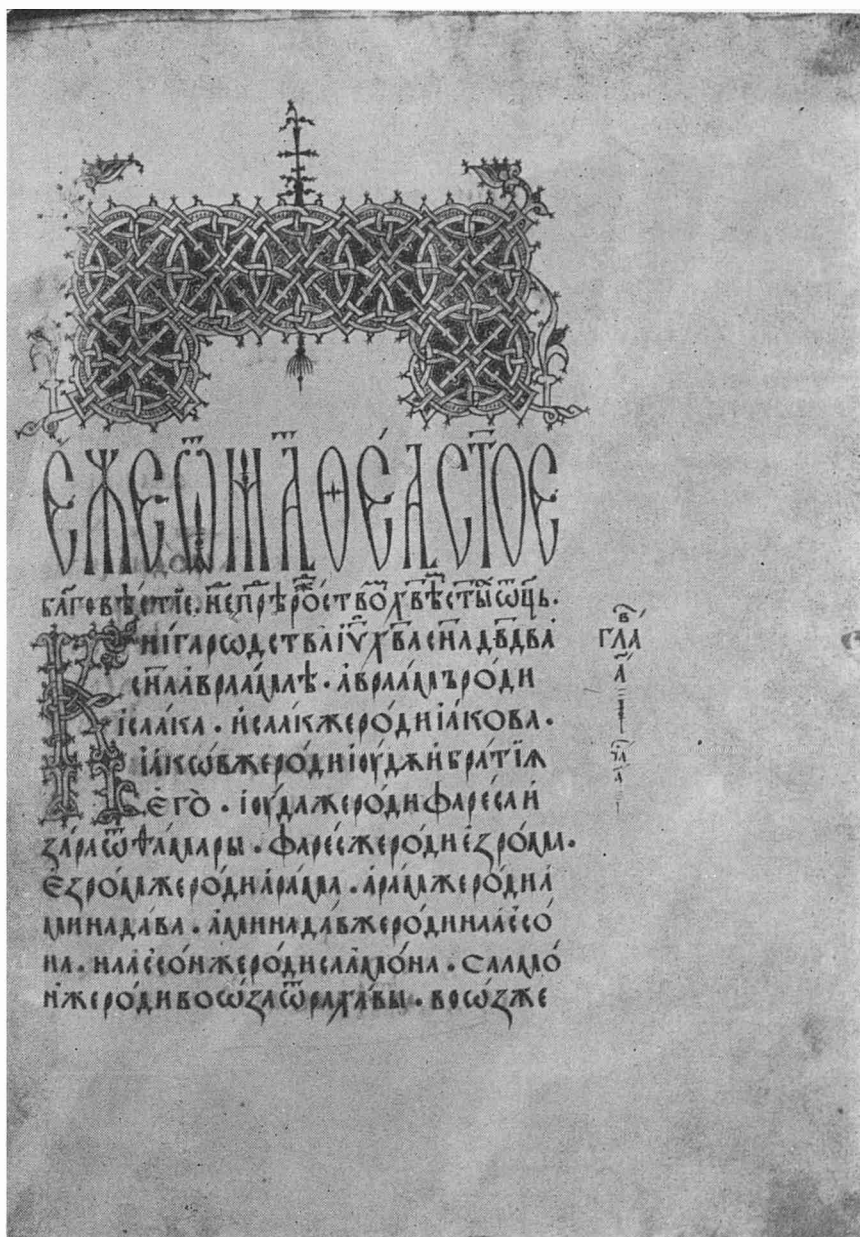 Е́ЖЕ Ѿ МАⷮѲЕ́А СТ҃ОЕ
БЛ҃ГОВѢ́СТІЕ. НЕⷣ ПРЕⷤ РОⷤСТВОⷨ ХВ҃ⷨѢ СТ҃Ыⷯ ѾЦ҃Ь.
КНИ́ГА РѠДСТВА ІУ҃ ХВ҃А СН҃А ДВ҃ДВА
СН҃А АВРАА́МЛѢ · АВРАА́МЪ РО́ДИ
ІСАА́КА · И҆САА́К ЖЕ РО́ДИ ІА́КОВА ·
ІА́КѠВ ЖЕ РО́ДИ ІОУ́ДѪ И҆ БРА́ТІЯ
Е҆ГО̀ · ІОУ́ДА ЖЕ РО́ДИ ФАРЕ́СА И҆
ЗА́РА Ѿ ѲА́МАРЫ · ФАРЕ́С ЖЕ РО́ДИ Е҆ЗРО́МА ·
Е҆ЗРО́М ЖЕ РО́ДИ А҆РА́МА · А҆РА́М ЖЕ РО́ДИ А҆
МИНАДА́ВА · А҆МИНАДА́В ЖЕ РО́ДИ НААССО́
НА · НААССО́Н ЖЕ РО́ДИ САЛМО́НА · САЛМО́
Н ЖЕ РО́ДИ ВОѠ́ЗА Ѿ РАХА́ВЫ · ВОѠ́З ЖЕ
ГЛА́